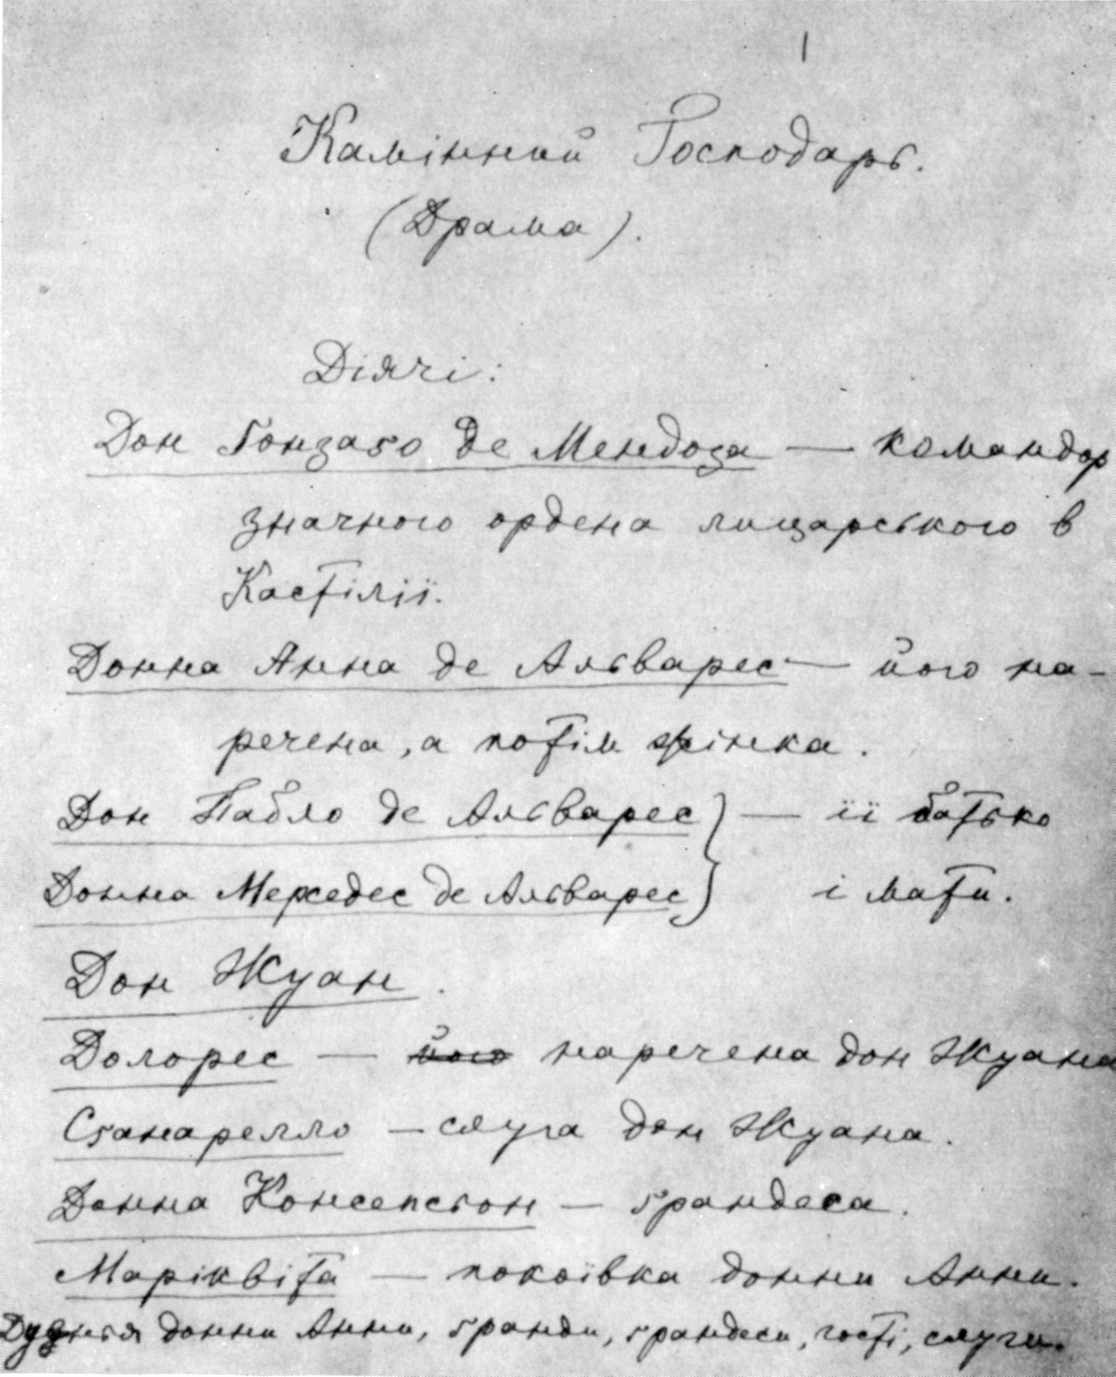 1
Камінний Господарь.
(Драма).
Діячі:
Дон Ґонзаґо де Мендоза — командор
значного ордена лицарського в
Кастілії.
Донна Анна де Альварес — його на-
речена, а потім жінка.
Дон Пабло де Альварес } — її батько
Донна Мерседес де Альварес } і мати.
Дон Жуан.
Долорес — його наречена дон Жуана
Сґанарелло — слуга дон Жуана.
Донна Консепсьон — ґрандеса.
Маріквіта — покоївка донни Анни.
Дуэнья донни Анни, ґранди, ґрандеси, гості, слуги.